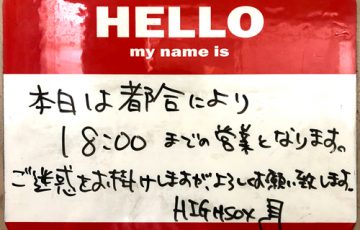 HELLO
my name is
本日は都合により
18:00 までの営業となります。
ご迷惑をお掛けしますが、よろしくお願い致します。
HIGHSOX